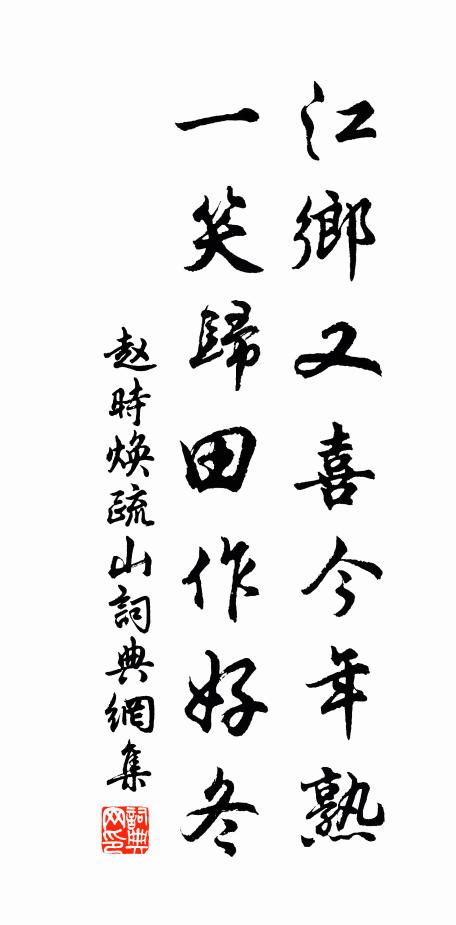 江鄉又喜今年熟
一笑歸田作好冬
赵時焕疏山詞典網集
詞典网印